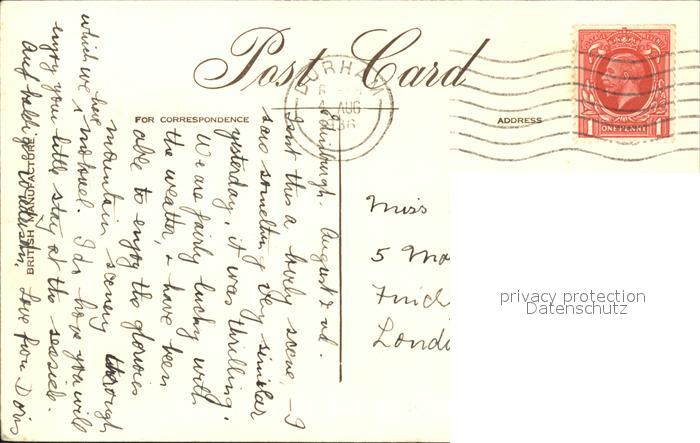 Post Card
DURHAM
AUG
36
POSTAGE REVENUE
1 ONE PENNY 1
FOR CORRESPONDENCE
ADDRESS
BRITISH MANUFACTURE
Edinburgh. August 2nd.
Isn't this a lovely scene – I
saw something very similar
yesterday, it was thrilling.
We are fairly lucky with
the weather, & have been
able to enjoy the glorious
mountain scenery through
which we have motored. I do hope you will
enjoy your little stay at the seaside.
Love from Doris
Miss
5 Ma
Finch
Londo
privacy protection
Datenschutz